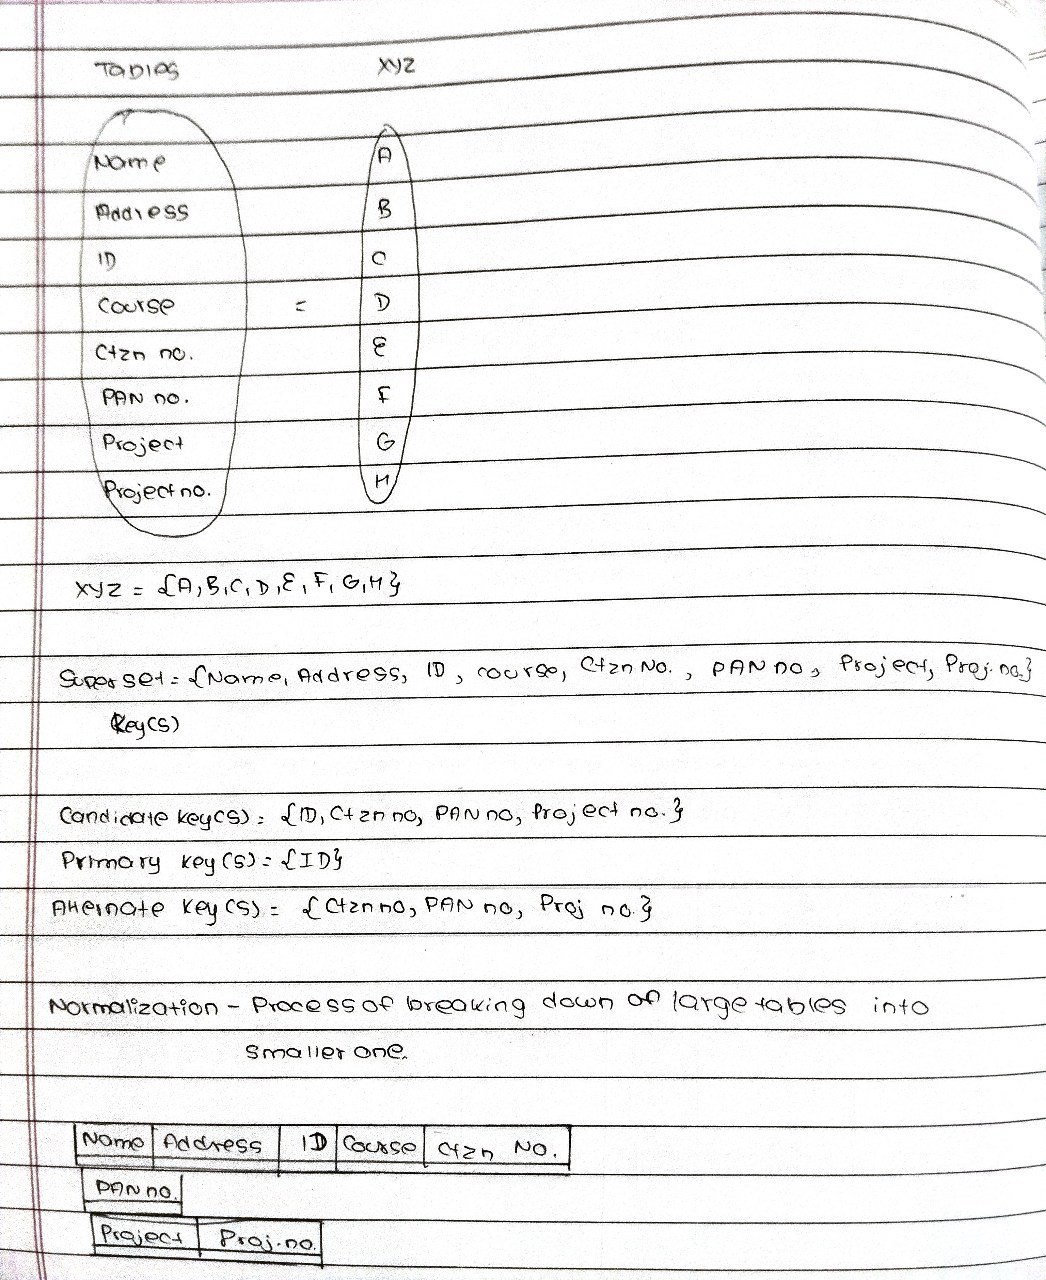 Tables XYZ
Name A
Address B
ID C
Course = D
Ctzn no. E
PAN no. F
Project G
Project no. H
XYZ = {A, B, C, D, E, F, G, H}
Superset = {Name, Address, ID, course, Ctzn No., PAN no, Project, Proj. no.}
Key(s)
Candidate key(s) = {ID, Ctzn no, PAN no, Project no.}
Primary key(s) = {ID}
Alternate key(s) = {Ctzn no, PAN no, Proj no.}
Normalization - Process of breaking down of large tables into
smaller one.
Name Address ID Course Ctzn No.
PAN no.
Project Proj. no.